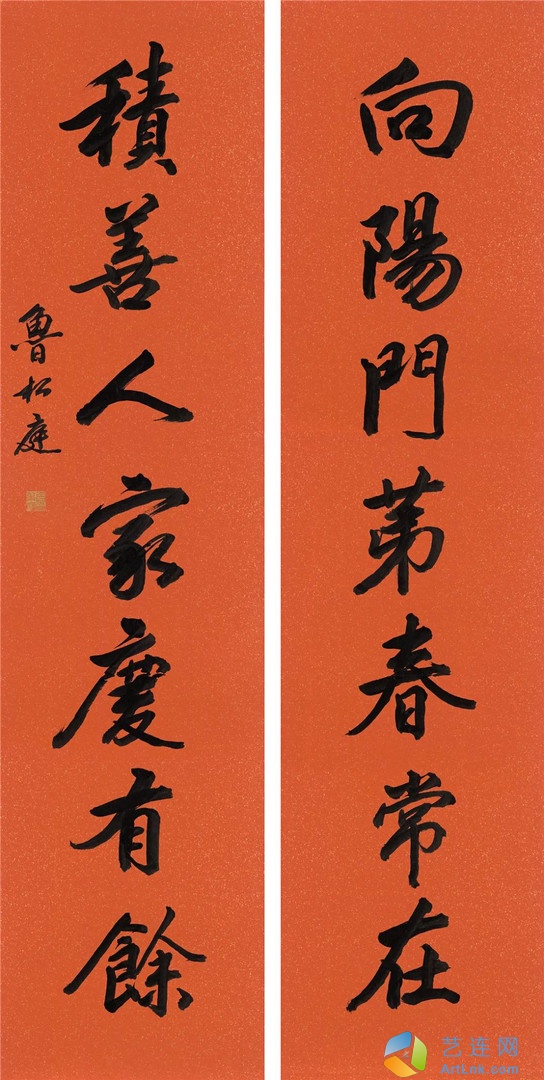 向陽門苐春常在
積善人家慶有餘
魯松庭
艺连网
ArtLnk.com